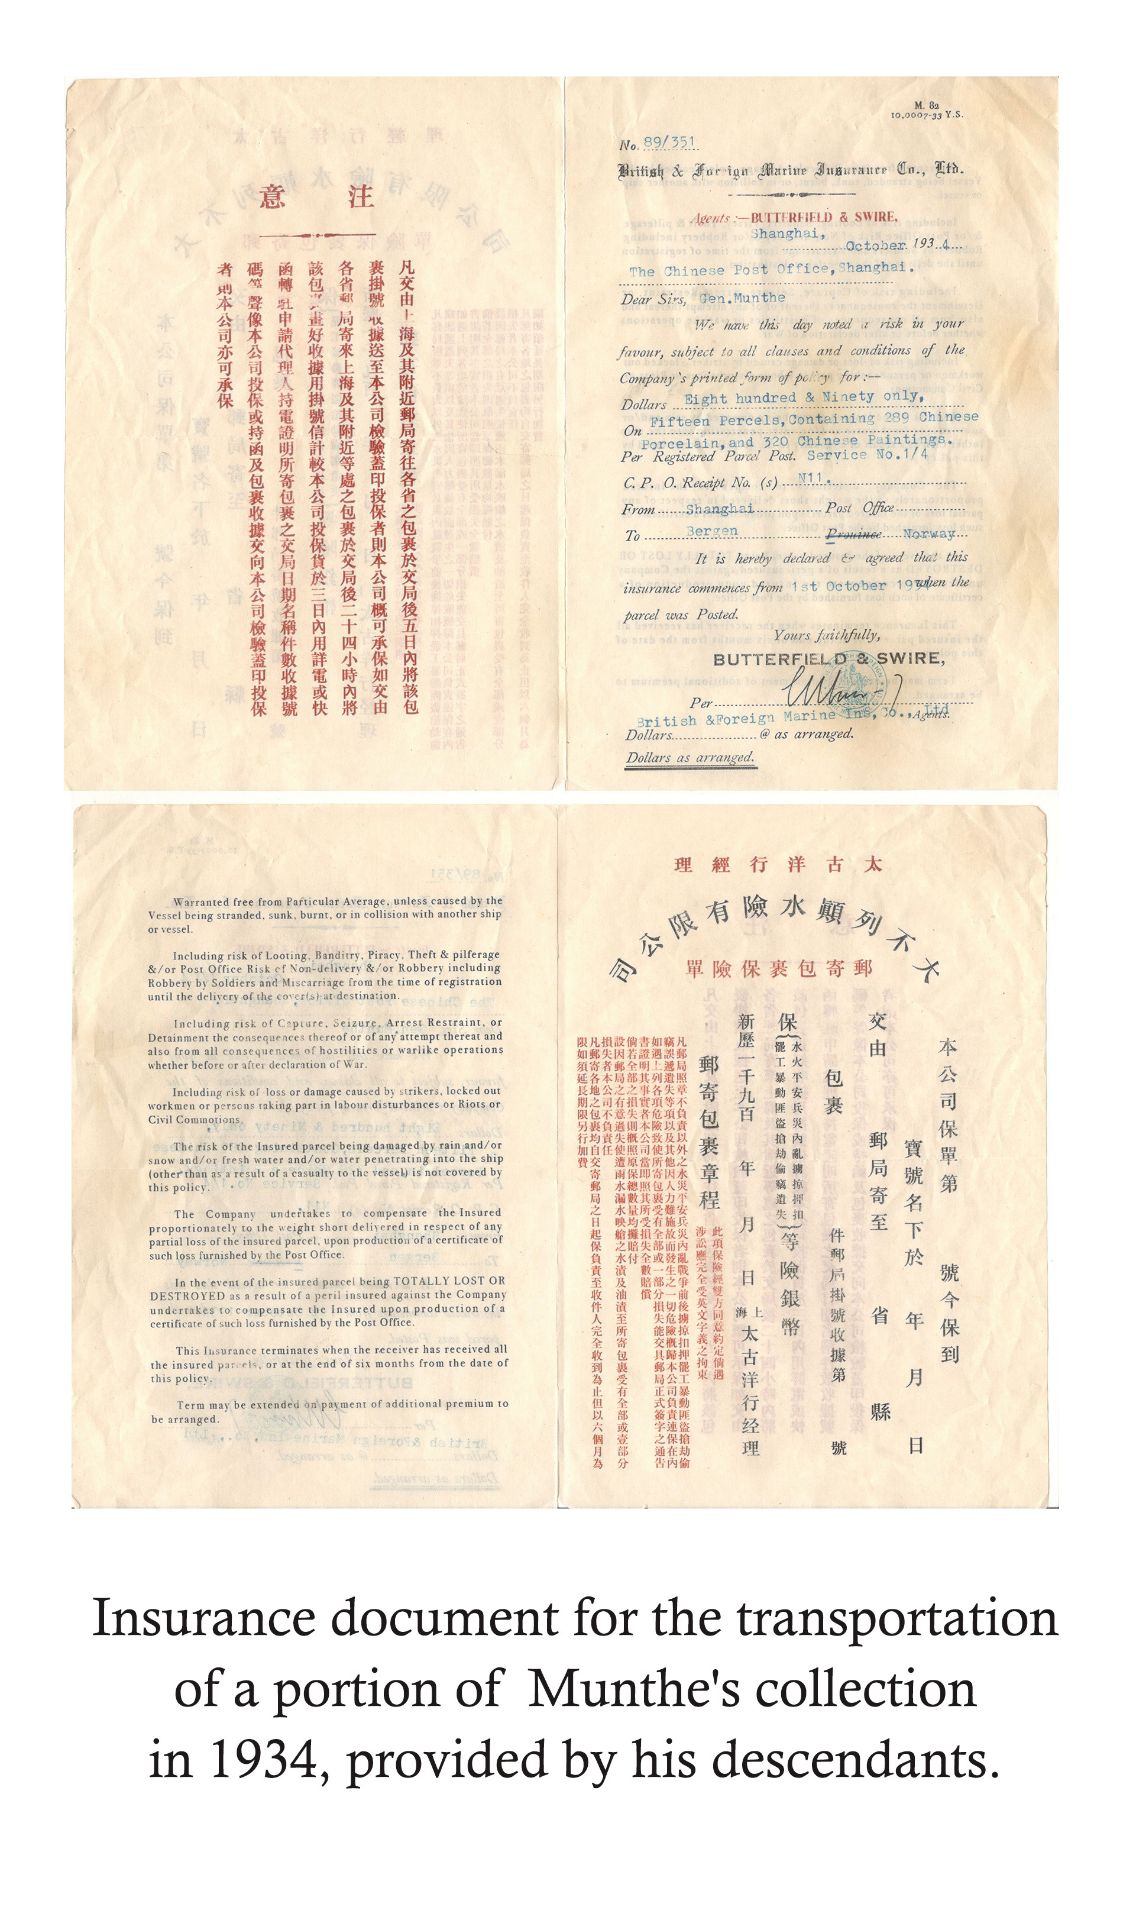 注 意
凡交由上海及其附近郵局寄往各省之包裹於交局後五日內將該包
裹掛號收據送至本公司檢驗蓋印投保者則本公司概可承保如交由
各省郵局寄來上海及其附近等處之包裹於交局後二十四小時內將
該包裹畫好收據用掛號信計較本公司投保貨於三日內用詳電或快
函轉駐申請代理人持電證明所寄包裹之交局日期名稱件數收據號
碼等聲像本公司投保或持函及包裹收據交向本公司檢驗蓋印投保
者則本公司亦可承保
M. 82
10,0007-33 Y.S.
No. 89/351
British & Foreign Marine Insurance Co., Ltd.
Agents :—BUTTERFIELD & SWIRE,
Shanghai,
October 1934
The Chinese Post Office, Shanghai.
Dear Sirs, Gen.Munthe
We have this day noted a risk in your
favour, subject to all clauses and conditions of the
Company's printed form of policy for :—
Dollars Eight hundred & Ninety only,
On Fifteen Percels, Containing 289 Chinese
Porcelain, and 320 Chinese Paintings.
Per Registered Parcel Post. Service No.1/4
C. P. O. Receipt No. (s) N11.
From Shanghai Post Office
To Bergen Province Norway
It is hereby declared & agreed that this
insurance commences from 1st October 1934 when the
parcel was Posted.
Yours faithfully,
BUTTERFIELD & SWIRE,
Per
British &Foreign Marine Ins, Co., Ltd Agents.
Dollars @ as arranged.
Dollars as arranged.
Warranted free from Particular Average, unless caused by the
Vessel being stranded, sunk, burnt, or in collision with another ship
or vessel.
Including risk of Looting, Banditry, Piracy, Theft & pilferage
&/or Post Office Risk of Non-delivery &/or Robbery including
Robbery by Soldiers and Miscarriage from the time of registration
until the delivery of the cover(s) at destination.
Including risk of Capture, Seizure, Arrest Restraint, or
Detainment the consequences thereof or of any attempt thereat and
also from all consequences of hostilities or warlike operations
whether before or after declaration of War.
Including risk of loss or damage caused by strikers, locked out
workmen or persons taking part in labour disturbances or Riots or
Civil Commotions.
The risk of the Insured parcel being damaged by rain and/or
snow and/or fresh water and/or water penetrating into the ship
(other than as a result of a casualty to the vessel) is not covered by
this policy.
The Company undertakes to compensate the Insured
proportionately to the weight short delivered in respect of any
partial loss of the insured parcel, upon production of a certificate of
such loss furnished by the Post Office.
In the event of the insured parcel being TOTALLY LOST OR
DESTROYED as a result of a peril insured against the Company
undertakes to compensate the Insured upon production of a
certificate of such loss furnished by the Post Office.
This Insurance terminates when the receiver has received all
the insured parcels, or at the end of six months from the date of
this policy.
Term may be extended on payment of additional premium to
be arranged.
太古洋行經理
大不列顛水險有限公司
郵寄包裹保險單
本公司保單第 號今保到
寶號名下於 年 月 日
交由 郵局寄至 省 縣
包裹 件郵局掛號收據第 號
保(水火平安兵災內亂擄掠押扣
罷工暴動匪盜搶劫偷竊遺失)等險銀幣
新歷一千九百 年 月 日 上海太古洋行经理
郵寄包裹章程
此項保險經雙方同意約定倘遇
涉訟應完全受英文字義之拘束
凡郵局照章不負責以外之水災平安兵災內亂戰爭前後擄掠扣押罷工暴動匪盜搶劫偷
竊誤遞遺失等項以及其他因人力難施故而發生之一切危險概歸本公司負責連保在內
如遇上列各項危險致使所寄包裹受有全部或一部分損失能交具郵局正式簽字之通告
書證明其事實者本公司當即照其所受損失全數賠償
倘若全部之損失則概照原保總數量均攤賠付
設因郵局之有意過失使遭雨水漏水映艙之水漬及油漬至所寄包裹受有全部或壹部分
損失者本公司不負責任
凡郵寄各地之包裹均自交寄郵局之日起保負責至收件人完全收到為止但以六個月為
限如須延長期限另行加費
Insurance document for the transportation
of a portion of Munthe's collection
in 1934, provided by his descendants.